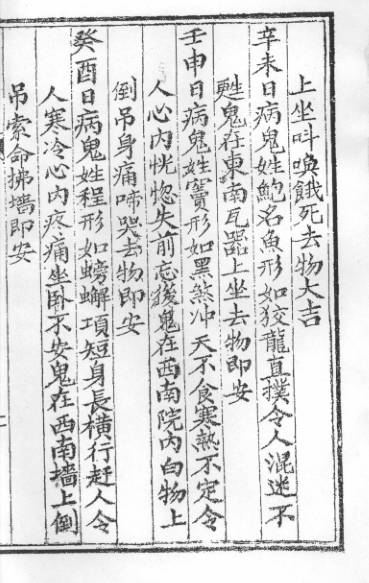 上坐呌喚餓死去物大吉
辛未日病鬼姓鮑名魚形如狡龍直撲令人混迷不
甦鬼在東南瓦器上坐去物即安
壬申日病鬼姓竇形如黑煞冲天不食寒熱不定令
人心內恍惚失前忘後鬼在西南院內白物上
倒吊身痛啼哭去物即安
癸酉日病鬼姓程形如螃蠏項短身長橫行赶人令
人寒冷心內疼痛坐卧不安鬼在西南墻上倒
吊索命拂墻即安